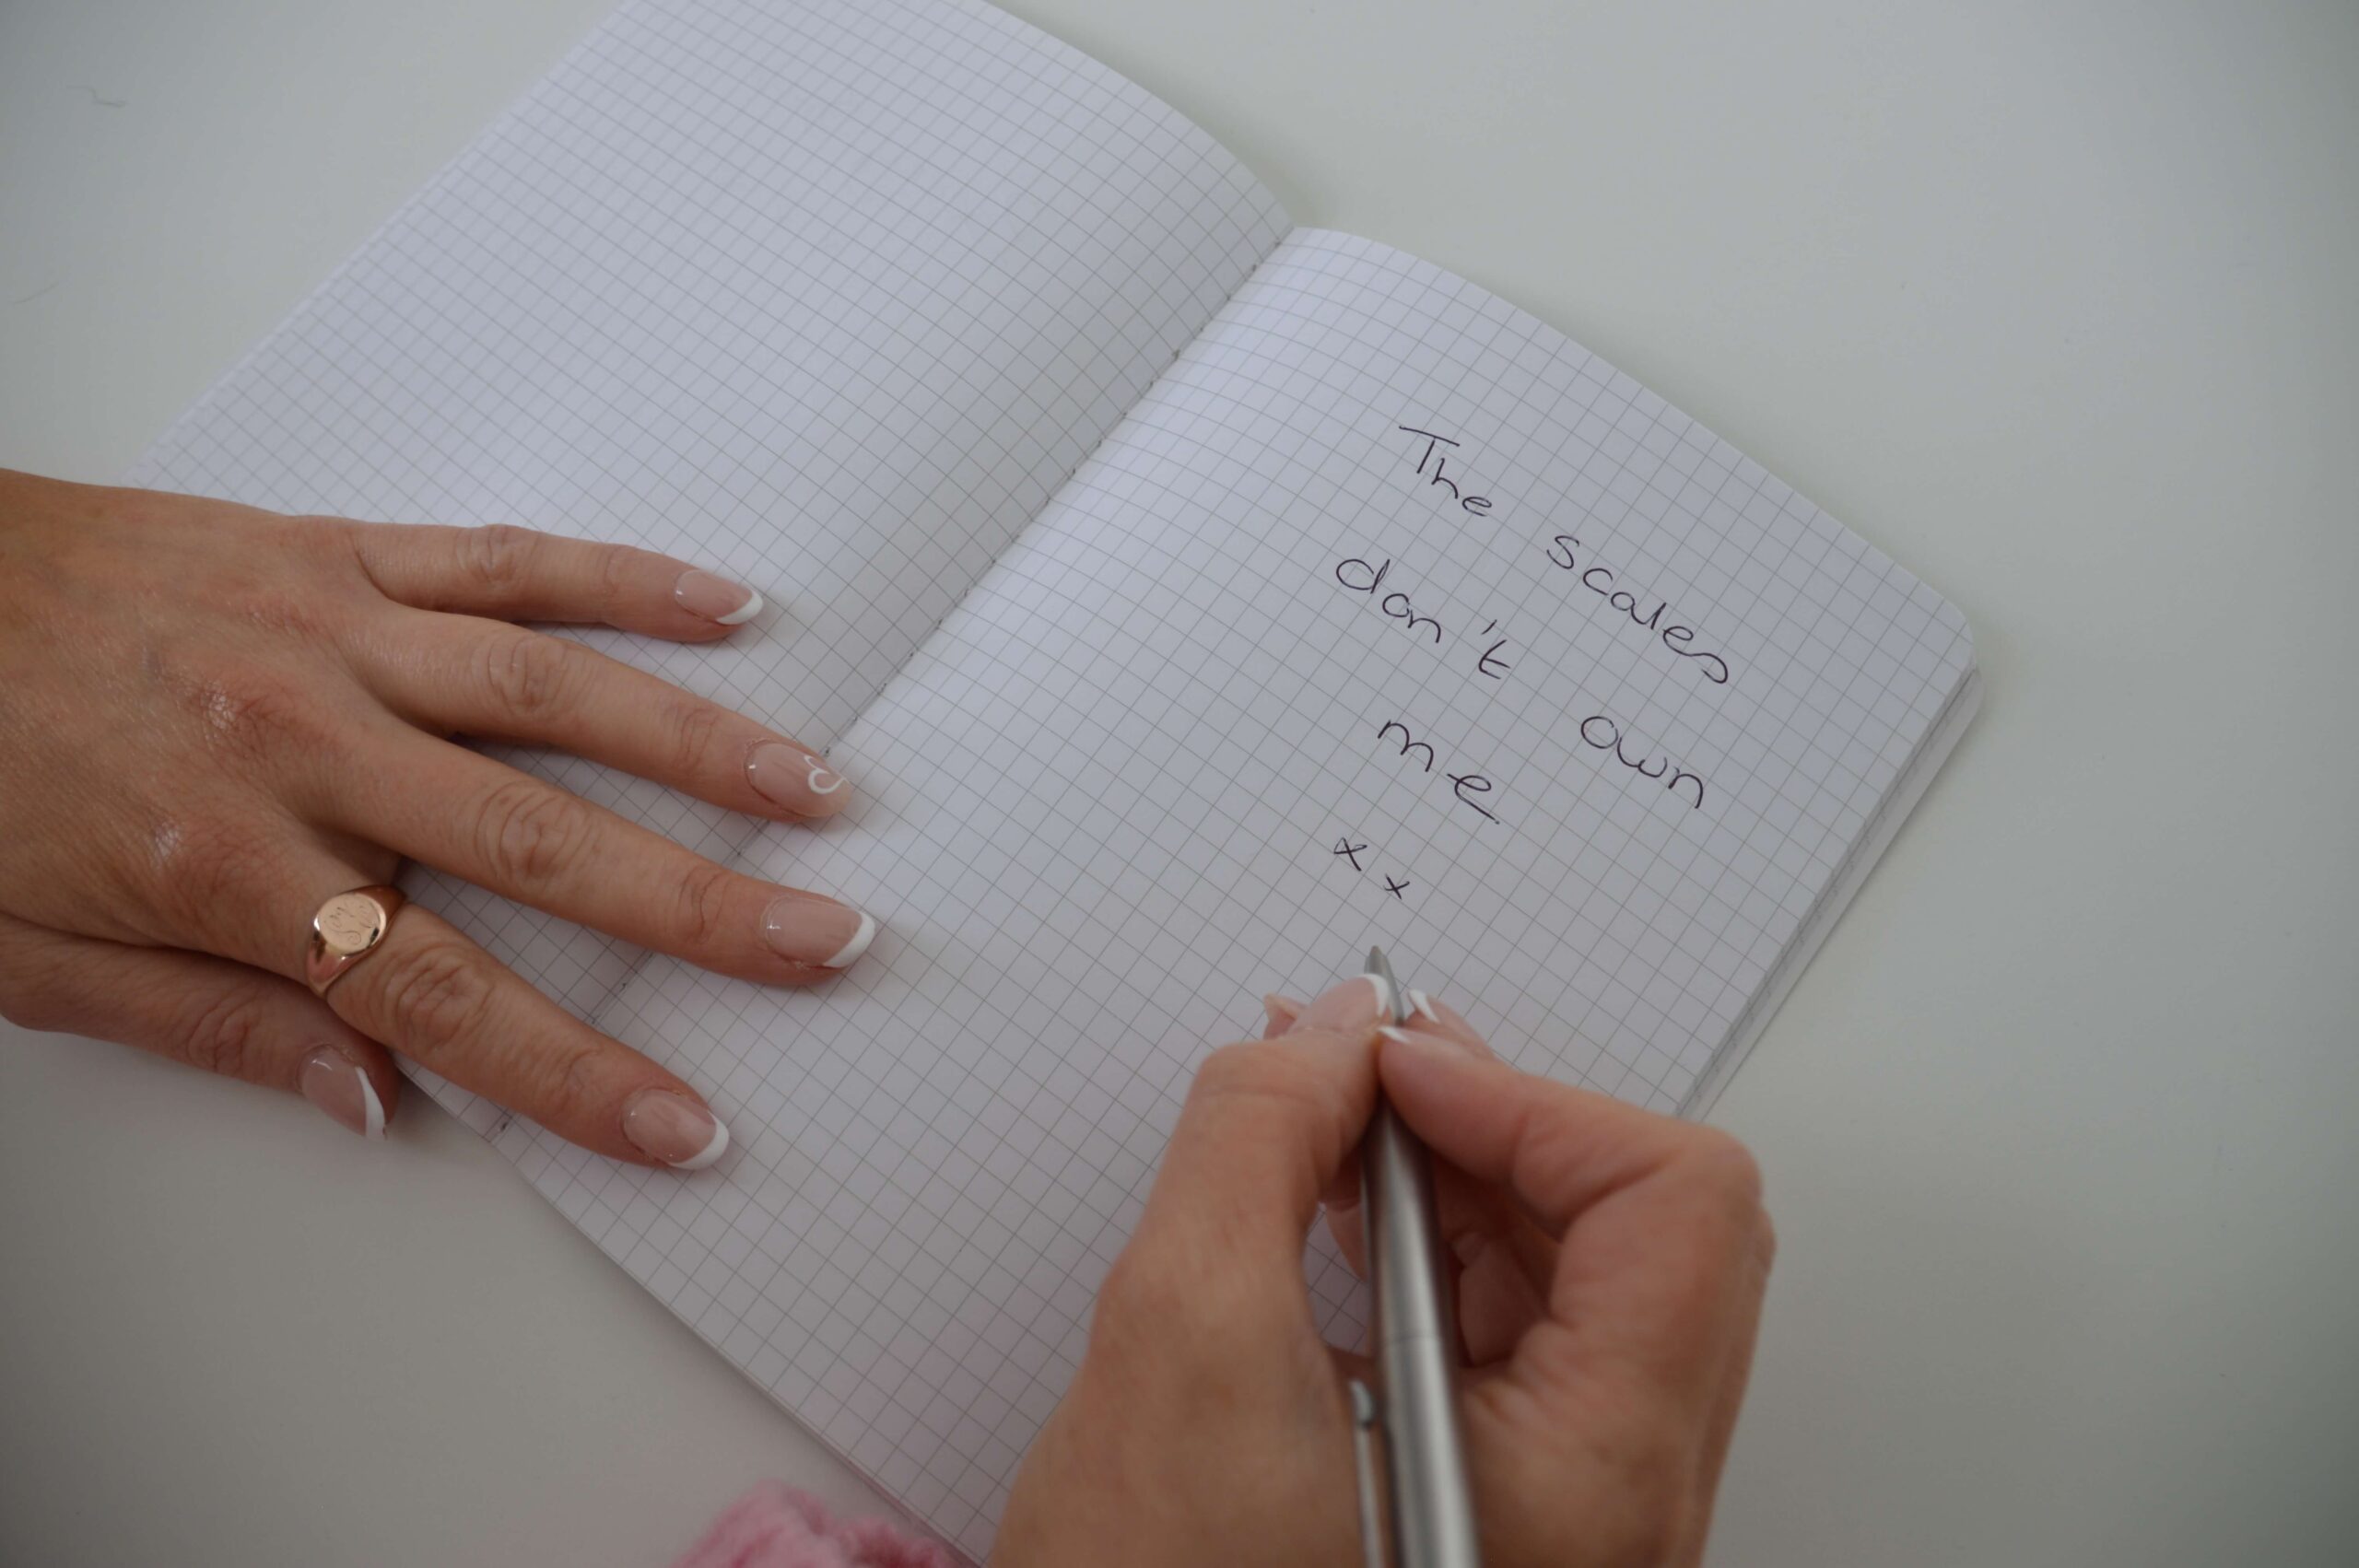 The scales
don't own
me
xx